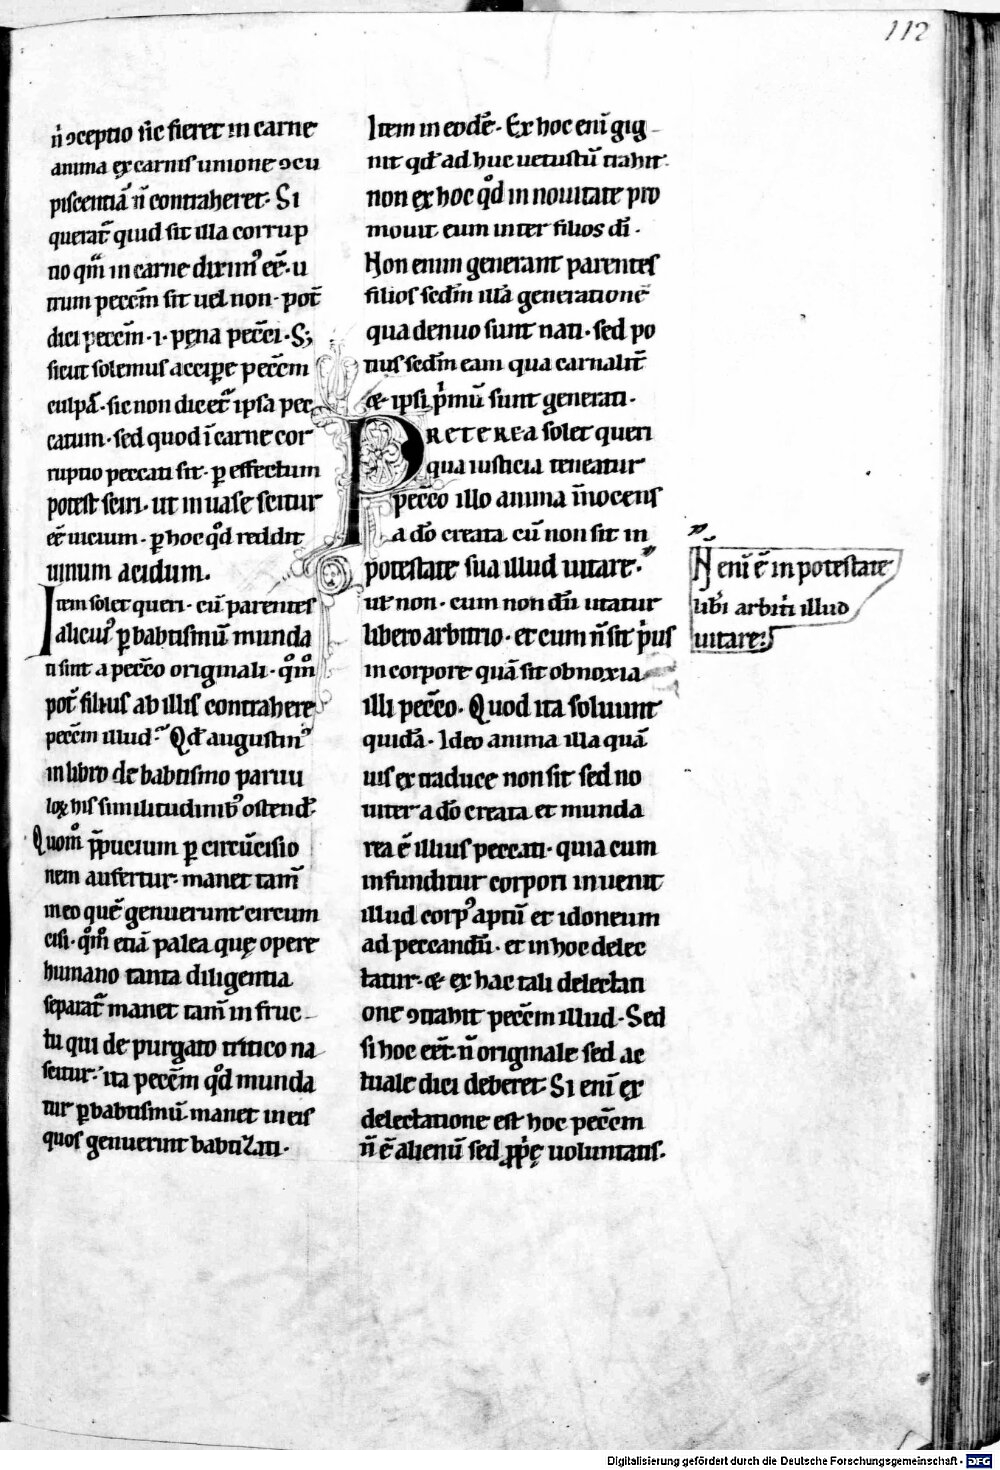 112
n̄ ꝯceptio n̄c fieret in carne
anima ex carnis unione ꝯcu
piscentiā n̄ contraheret. Si
querat᷑ quid sit illa corrup
tio qm̄ in carne diximꝰ eē. u
trum peccm̄ sit uel non. pot᷑
dici peccm̄ .i. pęna pecc̄i. S;
sicut solemus accipe peccm̄
culpā. sic non dicet᷑ ipsa pec
catum. sed quod ī carne cor
ruptio peccati sit. ꝑ effectum
potest sciri. ut in uase scitur
eē uicium. ꝑ hoc qd̄ reddit
uinum acidum.
Item solet queri. cū parentes
alicuiꝰ ꝑ babtismū munda
ti sint a pecc̄o originali. qm̄o
pot᷑ filius ab illis contrahere
peccm̄ illud. Qd̄ augustinꝰ
in libro de babtismo paruu
loꝝ his similitudinibꝰ ostend᷑
Quom̄ p̄puciū ꝑ circūcisio
nem aufertur. manet tam̄
in eo quē genuerunt circum
cisi. qm̄o etiā palea quę opere
humano tanta diligentia
separat᷑ manet tam̄ in fruc
tu qui de purgato tritico na
scitur. ita peccm̄ qd̄ munda
tur ꝑ babtismū manet in eis
quos genuerint babtizati.
Item in eodē. Ex hoc enī gig
nit qd̄ ad huc uetustū trahit.
non ex hoc qd̄ in nouitate pro
mouit eum inter filios dī.
Non enim generant parentes
filios secdm̄ illā generationē
qua denuo sunt nati. sed po
tius secdm̄ eam qua carnalit᷑
& ipsi p̍mū sunt generati.
PRETEREA solet queri
qua iusticia teneatur
pecc̄o illo anima īnocens
a dō creata cū non sit in
potestate sua illud uitare.
ut non. cum non dū utatur
libero arbitrio. et cum n̄ sit p̍us
in corpore quā sit obnoxia
illi pecc̄o. Quod ita soluunt
quidā. Ideo anima illa quā
uis ex traduce non sit sed no
uiter a dō creata et munda
rea ē illius peccati. quia cum
infunditur corpori inuenit
illud corpꝰ aptū et idoneum
ad peccandū. et in hoc delec
tatur. & ex hac tali delectati
one ꝯtrahit peccm̄ illud. Sed
si hoc eēt. n̄ originale sed ac
tuale dici deberet. Si enī ex
delectatione est hoc peccm̄
n̄ ē alienū sed ꝓp̍ę uoluntatis.
N̄ enī ē in potestate
lib̍i arbit̍i illud
uitare.
Digitalisierung gefördert durch die Deutsche Forschungsgemeinschaft - DFG